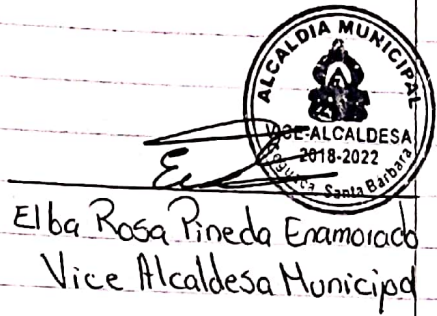 ALCALDIA MUNICIPAL
VICE-ALCALDESA
2018-2022
Santa Barbara
Elba Rosa Pineda Enamorado
Vice Alcaldesa Municipal